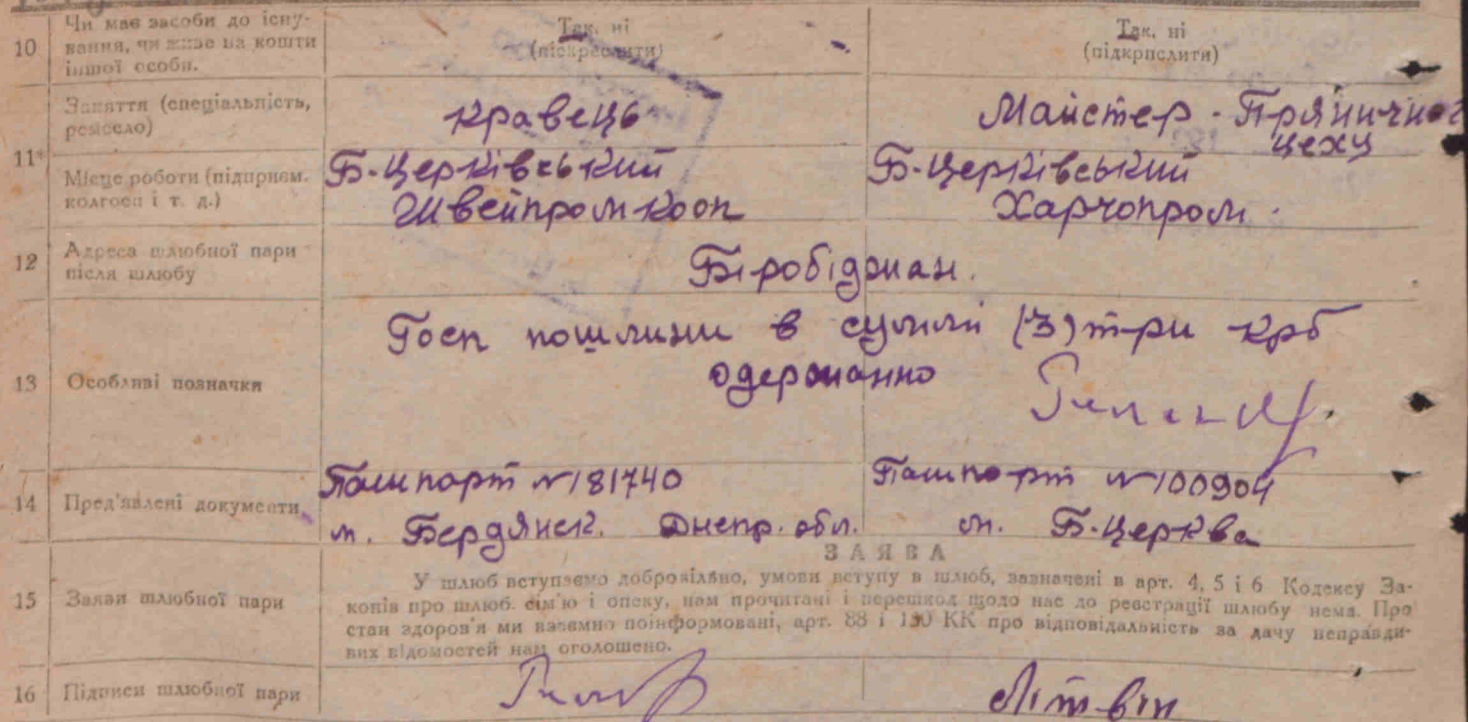 10 Чи має засоби до існу-
вання, чи живе на кошти
іншої особи.
Так, ні
(підкреслити)
Так, ні
(підкрпслити)
11*
Заняття (спеціальність,
ремесло)
Кравець
Майстер - Пряничног
цеху
Місце роботи (підприєм.
колгосп і т. д.)
Б-Церківський
Швейпромкооп
Б-Церківський
Харчопром.
12 Адреса шлюбної пари
після шлюбу
Біробіджан.
13 Особливі позначки
Госп пошлини в суммі (3) три крб
одержанно
14 Пред'явлені документи
Пашпорт N181740
м. Бердянск. Днепр. обл.
Пашпорт N100904
м. Б-Церква
15 Заяви шлюбної пари
ЗАЯВА
У шлюб вступаємо добровільно, умови вступу в шлюб, зазначені в арт. 4, 5 і 6 Кодексу За-
конів про шлюб, сім'ю і опеку, нам прочитані і перешкод щодо нас до реєстрації шлюбу нема. Про
стан здоров'я ми взаємно поінформовані, арт. 88 і 130 КК про відповідальність за дачу неправди-
вих відомостей нам оголошено.
16 Підписи шлюбної пари
Літвін